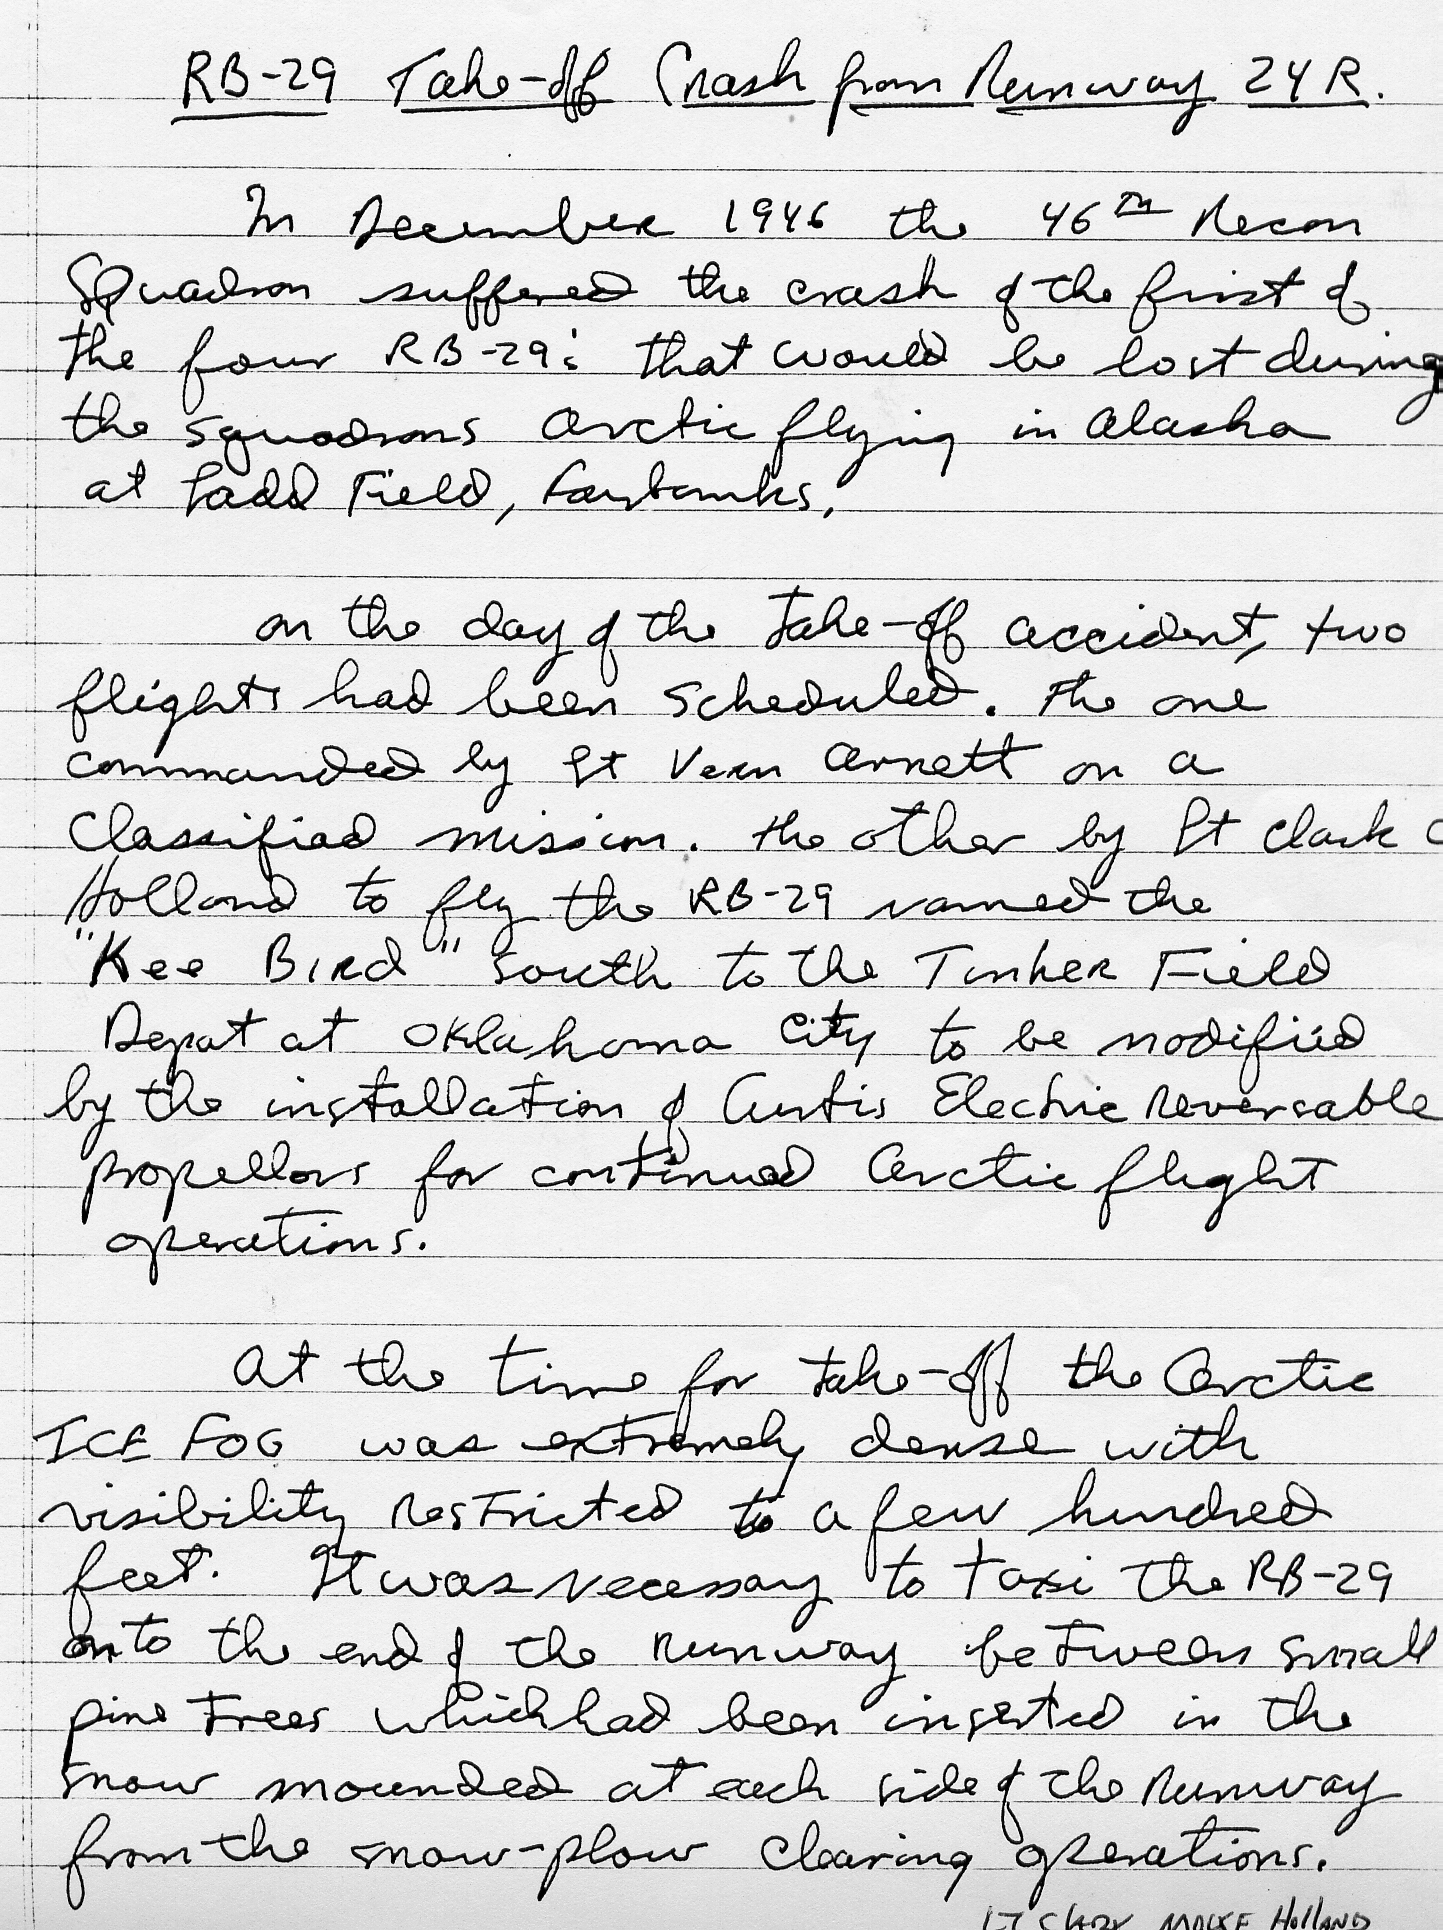 RB-29 Take-off Crash from Runway 24R.
In December 1946 the 46TH Recon
Squadron suffered the crash of the first of
the four RB-29s that would be lost during
the squadrons arctic flying in Alaska
at Ladd Field, Fairbanks.
on the day of the take-off accident, two
flights had been scheduled. The one
commanded by Lt Vern Arnett on a
Classified mission. the other by Lt Clark C
Holland to fly the RB-29 named the
"Kee Bird" south to the Tinker Field
Depot at Oklahoma City to be modified
by the installation of Curtis Electric Reversable
propellors for continued Arctic flight
operations.
At the time for take-off the Arctic
ICE FOG was extremely dense with
visibility restricted to a few hundred
feet. It was necessary to taxi the RB-29
onto the end of the runway between small
pine trees which had been inserted in the
snow mounded at each side of the runway
from the snow-plow clearing operations.
LT Holland